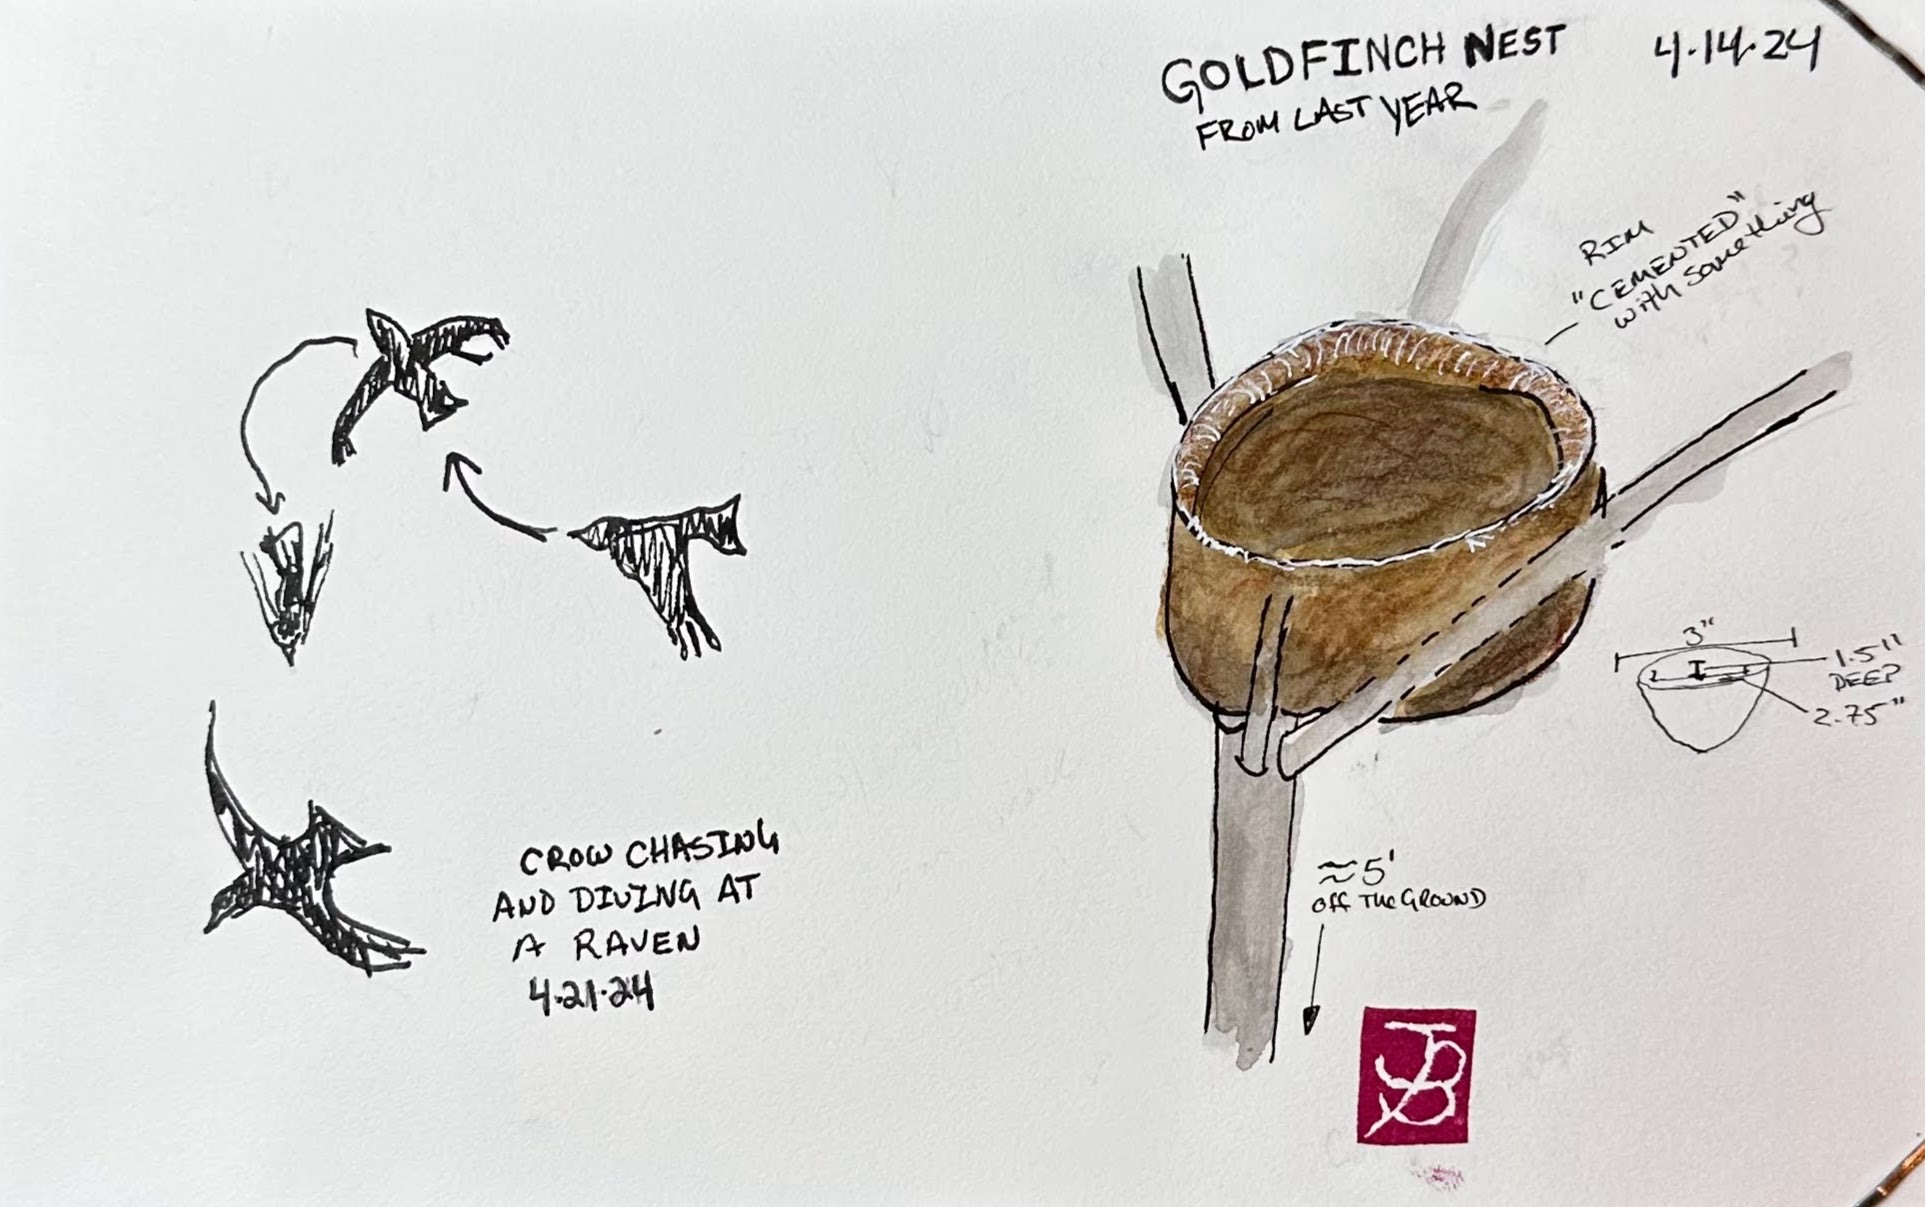 GOLDFINCH NEST
FROM LAST YEAR
4.14.24
RIM
"CEMENTED"
with something
3"
1.5"
DEEP
2.75"
≈5'
off The GROUND
CROW CHASING
AND DIVING AT
A RAVEN
4.21.24
JB